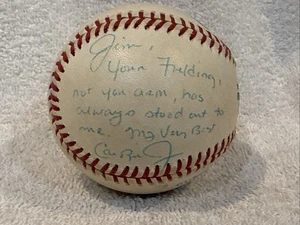 Jim,
Your Fielding,
not your arm, has
always stood out to
me. My Very Best